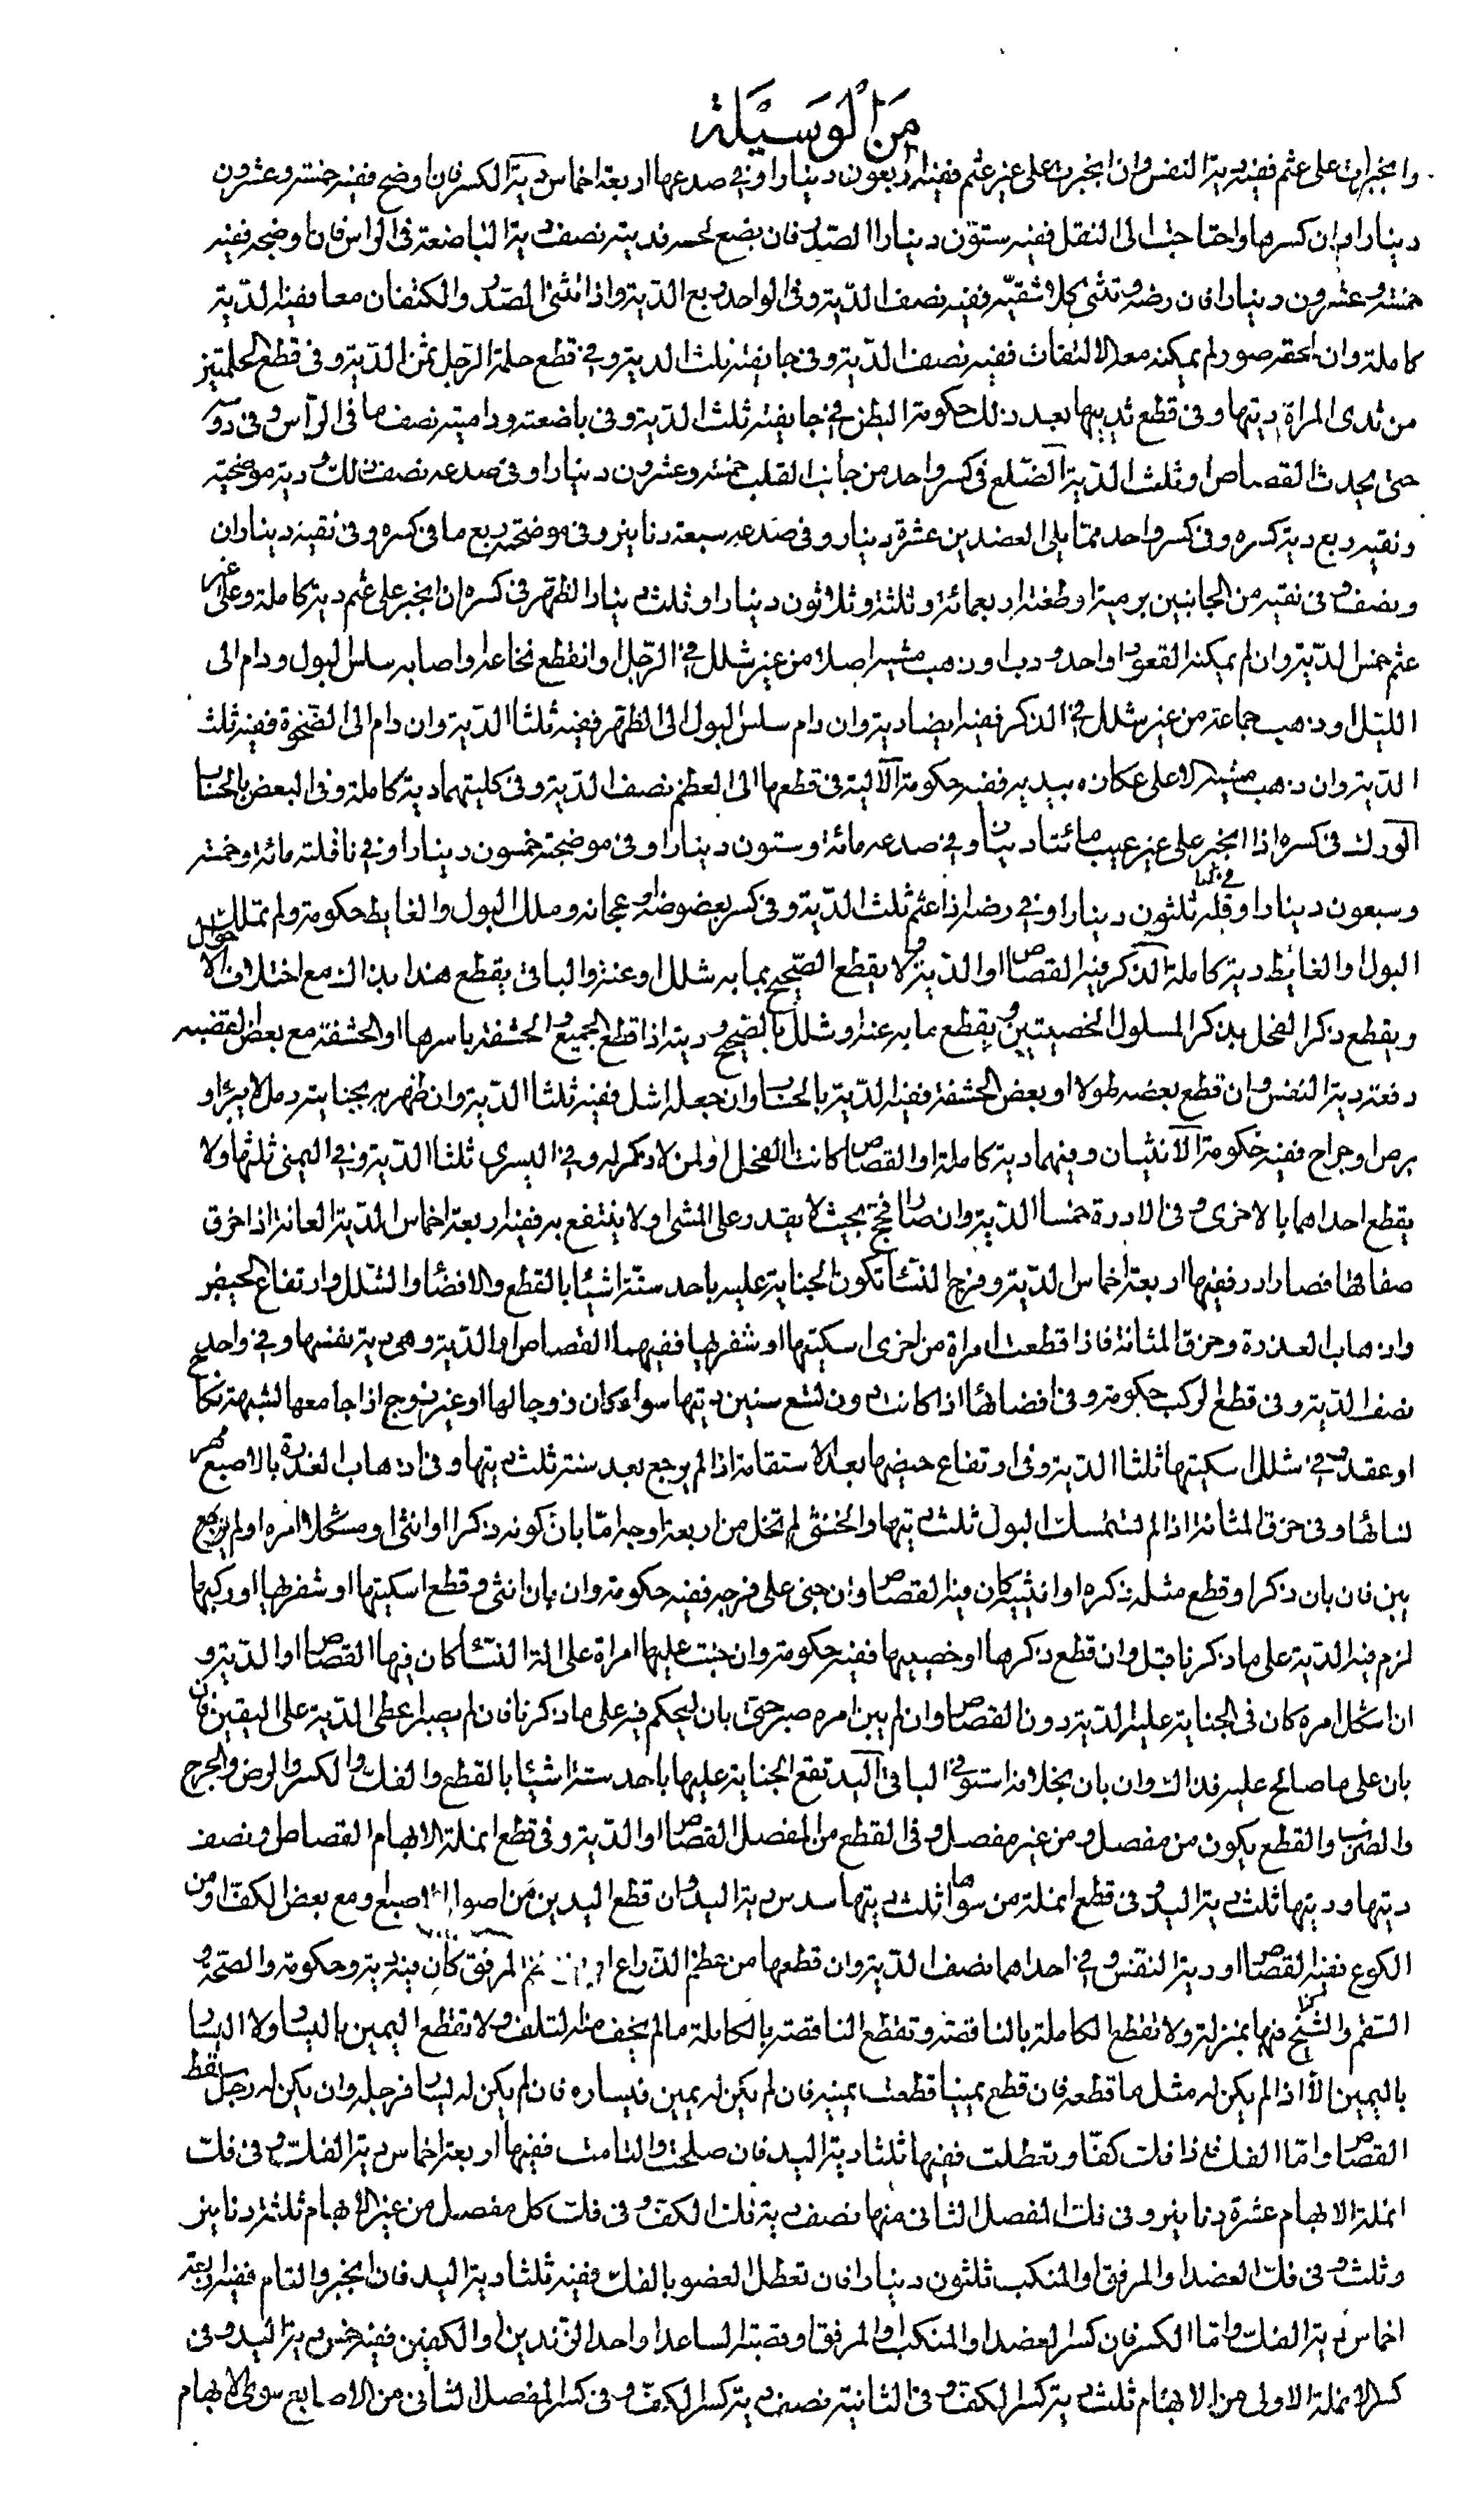 من الوسيلة
وانجبرت على عثم ففيه دية النفس وان انجبرت على غير عثم ففيه اربعون دينارا وفي صدعها اربعة اخماس دية الكسر فان اوضح ففيه خمسة وعشرون
دينارا وان كسرها واحتاجت الى النقل ففيه ستون دينارا الصدر فان بضع لحمه فديته نصف دية الباضعة في الراس فان اوضحه ففيه
خمسة وعشرون دينارا فان رضه وتثنى كلا شقيه ففيه نصف الدية وفي الواحد ربع الدية واذا انثنى الصدر والكتفان معا ففيه الدية
كاملة وان صور لم يمكنه معه الالتفات ففيه نصف الدية وفي جايفته ثلث الدية وفي قطع حلمة الرجل ثمن الدية وفي قطع الحلمتين
من ثدى المراة ديتها وفي قطع ثدييها بعد ذلك حكومة البطن في جايفته ثلث الدية وفي باضعته ودامیته نصف ما في الراس وفي
حتى يحدث القصاص او ثلث الدية الضلع في كسر واحد من جانب القلب خمسة وعشرون دينارا وفي صدعه نصف ذلك ودية موضحته
ونقبه ربع دية كسره وفي كسر واحد مما يلى العضدين عشرة دينار وفي صدعه سبعة دنانير وفي موضحته ربع ما في كسره وفي نقبه ديناران
ونصف وفي نقبه من الجانبين برمية او طعنة اربعمائة وثلثة وثلاثون دينارا وثلث دينار الظهر في كسره ان انجبر على عثم دية كاملة وعلى غير
عثم خمس الدية وان لم يمكنه القعود او احدودب او ذهب مشيه اصلا من غير شلل في الرجل او انقطع نخاعه او اصابه سلس البول ودام الى
الليل او ذهب جماعه من غير شلل في الذكر ففيه ايضا دية وان دام سلس البول الى الظهر ففيه ثلثا الدية وان دام الى الضحوة ففيه ثلث
الدية وان ذهب مشيه الا على عكازه بيديه ففيه حكومة الالية في قطعها الى العظم نصف الدية وفي كليتهما دية كاملة وفي البعض بالحساب
الورك في كسره اذا انجبر على غير عيب مائتا دينار وفي صدعه مائة وستون دينارا وفي موضحته خمسون دينارا وفي ناقلته مائة وخمسة
وسبعون دينارا وفي فكه ثلثون دينارا وفي رضه اذا عثم ثلث الدية وفي كسر بعضوضه وعجانه وملك البول والغايط حكومة ولم تملك
البول او الغايط دية كاملة الذكر فيه القصاص او الدية ولا يقطع الصحيح بما به شلل او عنة والباقي يقطع هذا بذاك مع اختلاف الاحوال
ويقطع ذكر الفحل بذكر المسلول الخصيتين ويقطع ما به عنة او شلل بالصحيح ودية اذا قطع الجميع او الحشفة باسرها او الحشفة مع بعض القضيب
دفعة دية النفس وان قطع بعضه طولا او بعض الحشفة ففيه الدية بالحساب وان جعله اشل ففيه ثلثا الدية وان ظهر به بجنايته دمل لا يبرا او
برص او جراح ففيه حكومة الانثيان وفيهما دية كاملة او القصاص كانت الفحل او لمن لا ذكر له وفي اليسرى ثلثا الدية وفي اليمنى ثلثها ولا
يقطع احداهما بالاخرى وفي الادرة خمسا الدية وان صار افحج بحيث لا يقدر على المشى او لا ينتفع به ففيه اربعة اخماس الدية العانة اذا خرق
صفاقها فصار ادر ففيها اربعة اخماس الدية وفرج النساء تكون الجناية عليه باحد ستة اشياء بالقطع والافضاء والشلل وارتفاع الحيض
واذهاب العذرة وخرق المثانة فاذا قطعت امراة من اخرى اسكتيها او شفريها ففيهما القصاص او الدية وهي دية نفسها وفي واحد
نصف الدية وفي قطع الركب حكومة وفي افضائها اذا كانت دون تسع سنين ديتها سواء كان زوجا لها او غير زوج اذا جامعها لشبهة نكاح
او عقد وفي شلل اسكتيها ثلثا الدية وفي ارتفاع حيضها بعد الاستقامة اذا لم يرجع بعد سنة ثلث ديتها وفي اذهاب العذرة بالاصبع مهر
نسائها وفي خرق المثانة اذا لم تستمسك البول ثلث ديتها والخنثى لم تخل من اربعة اوجه اما بان كونه ذكرا او انثى او مشكلا امره او لم
يبن فان بان ذكرا وقطع مثله ذكره او انثييه كان فيه القصاص وان جنى على فرجه ففيه حكومة وان بان انثى وقطع اسكتيها او شفريها او ركبها
لزم فيه الدية على ما ذكرنا قبل وان قطع ذكرها او خصييها ففيه حكومة وان جنت عليها امراة على الة النساء كان فيها القصاص او الدية و
ان اشكل امره كان في الجناية عليه الدية دون القصاص وان لم يبن امره صبر حتى بان ليحكم فيه على ما ذكرنا فان لم يصبر اعطى الدية على اليقين فان
بان على ما صالح عليه فذاك وان بان بخلافه استوفى الباقي اليد تقع الجناية عليها باحد ستة اشياء بالقطع والفك والكسر والرض والجرح
والضرب والقطع يكون من مفصل ومن غير مفصل وفي القطع من المفصل القصاص او الدية وفي قطع انملة الابهام القصاص او نصف
ديتها وديتها ثلث دية اليد وفي قطع انملة من سواها ثلث ديتها سدس دية اليد وان قطع اليدين من اصول الاصابع ومع بعض الكف او من
الكوع ففيه القصاص او دية النفس وفي احداهما نصف الدية وان قطعها من عظم الذراع المرفق كان فيه دية وحكومة والصحة و
السقم والشيخ فيها بمنزلة ولا تقطع الكاملة بالناقصة وتقطع الناقصة بالكاملة ما لم يخف منه التلف ولا تقطع اليمين باليسار ولا اليسار
باليمين الا اذا لم يكن له مثل ما قطعه فان قطع يمينا قطعت يمينه فان لم يكن له يمين فيساره فان لم يكن له يسار فرجله وان يكن له رجل سقط
القصاص واما الفك فاذا فك كفا وتعطلت ففيها ثلثا دية اليد فان صلحت والتامت ففيها اربعة اخماس دية الفك وفي فك
انملة الابهام عشرة دنانير وفي فك المفصل الثاني منها نصف دية فك الكف وفي فك كل مفصل من غير الابهام ثلثة دنانير
وثلث وفي فك العضد او المرفق او المنكب ثلثون دينارا فان تعطل العضو بالفك ففيه ثلثا دية اليد فان انجبر والتام ففيه اربعة
اخماس دية الفك واما الكسر فان كسر العضد او المنكب او المرفق او قصبة الساعد او احد الزندين او الكفين ففيه خمس دية اليد وفي
كسر الانملة الاولى من الابهام ثلث دية كسر الكف وفي الثانية نصف دية كسر الكف وفي كسر المفصل الثاني من الاصابع سوى الابهام